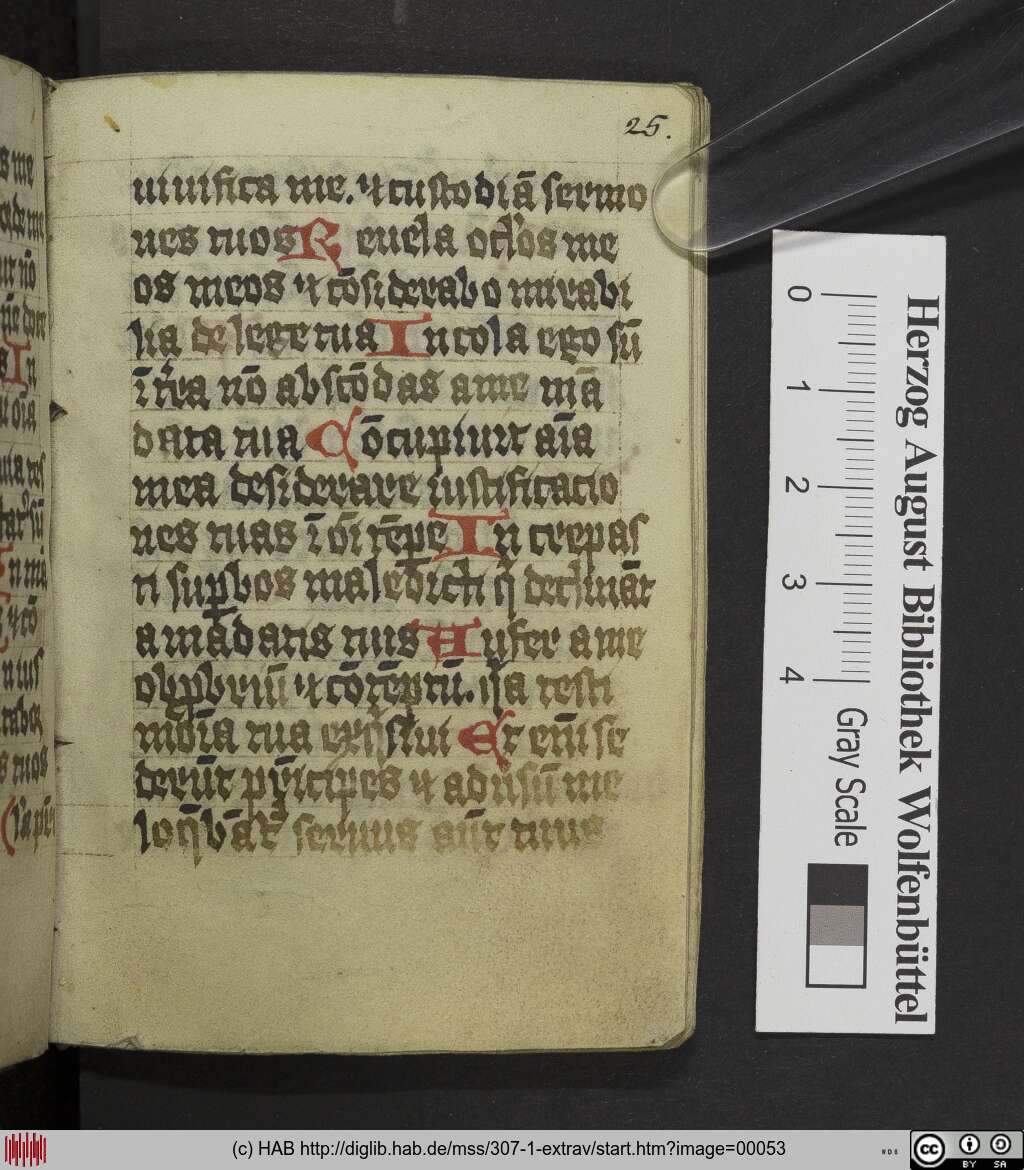 25.
uiuifica me. et custodiā sermo
nes tuos Reuela oclos me
os meos et cōsiderabo mirabi
lia de lege tua Incola ego sū
ī tr̄a nō abscōdas a me mā
data tua Cōcupiuit aīa
mea desiderare iustificacio
nes tuas ī oī tēpe Increpas
ti supbos maledicti qͥ declināt
a mādatis tuis Aufer a me
obpbriū et cōtēptū. qͥa testi
mōia tua exsisiui Et enī se
derūt pͥncipes et aduͥsū me
loqͣbāt seruus aūt tuus
Herzog August Bibliothek Wolfenbüttel
0 1 2 3 4
Gray Scale
(c) HAB http://diglib.hab.de/mss/307-1-extrav/start.htm?image=00053
cc BY SA